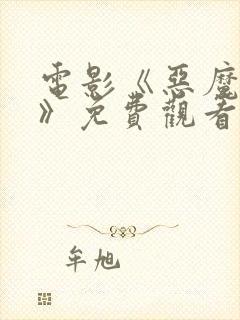 電影《惡魔
》免費觀看
牟旭